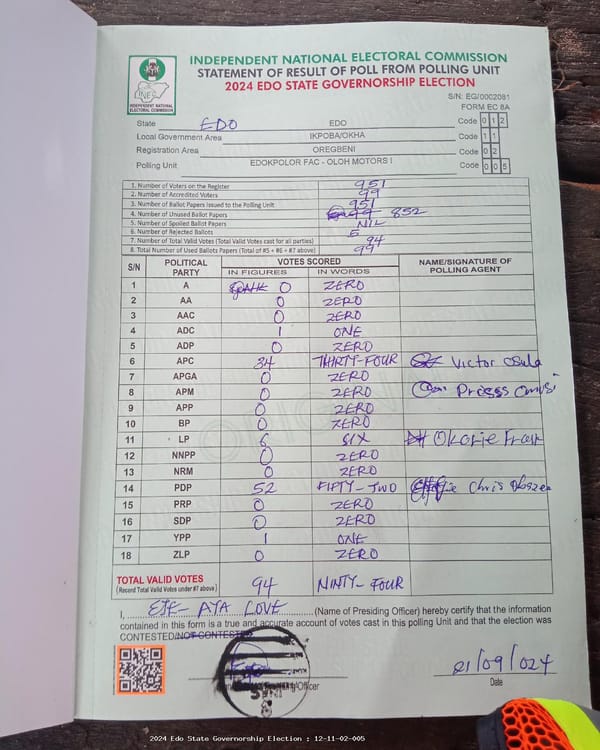 INDEPENDENT NATIONAL ELECTORAL COMMISSION
STATEMENT OF RESULT OF POLL FROM POLLING UNIT
2024 EDO STATE GOVERNORSHIP ELECTION
INDEPENDENT NATIONAL ELECTORAL COMMISSION
S/N: EG/0002081
FORM EC 8A
State EDO EDO Code 0 1 2
Local Government Area IKPOBA/OKHA Code 1 1
Registration Area OREGBENI Code 0 2
Polling Unit EDOKPOLOR FAC - OLOH MOTORS I Code 0 0 5
1. Number of Voters on the Register 951
2. Number of Accredited Voters 99
3. Number of Ballot Papers Issued to the Polling Unit 951
4. Number of Unused Ballot Papers 852
5. Number of Spoiled Ballot Papers NIL
6. Number of Rejected Ballots 5
7. Number of Total Valid Votes (Total Valid Votes cast for all parties) 94
8. Total Number of Used Ballots Papers (Total of #5 + #6 + #7 above) 99
S/N POLITICAL PARTY VOTES SCORED NAME/SIGNATURE OF POLLING AGENT
IN FIGURES IN WORDS
1 A 0 ZERO
2 AA 0 ZERO
3 AAC 0 ZERO
4 ADC 1 ONE
5 ADP 0 ZERO
6 APC 34 THIRTY-FOUR Victor
7 APGA 0 ZERO
8 APM 0 ZERO
9 APP 0 ZERO
10 BP 0 ZERO
11 LP 6 SIX Okorie
12 NNPP 0 ZERO
13 NRM 0 ZERO
14 PDP 52 FIFTY-TWO Chris
15 PRP 0 ZERO
16 SDP 0 ZERO
17 YPP 1 ONE
18 ZLP 0 ZERO
TOTAL VALID VOTES 94 NINTY-FOUR
(Record Total Valid Votes under #7 above)
I, EJE-AYA LOVE (Name of Presiding Officer) hereby certify that the information
contained in this form is a true and accurate account of votes cast in this polling Unit and that the election was
CONTESTED/NOT CONTESTED
21/09/024
Officer
Date
2024 Edo State Governorship Election : 12-11-02-005